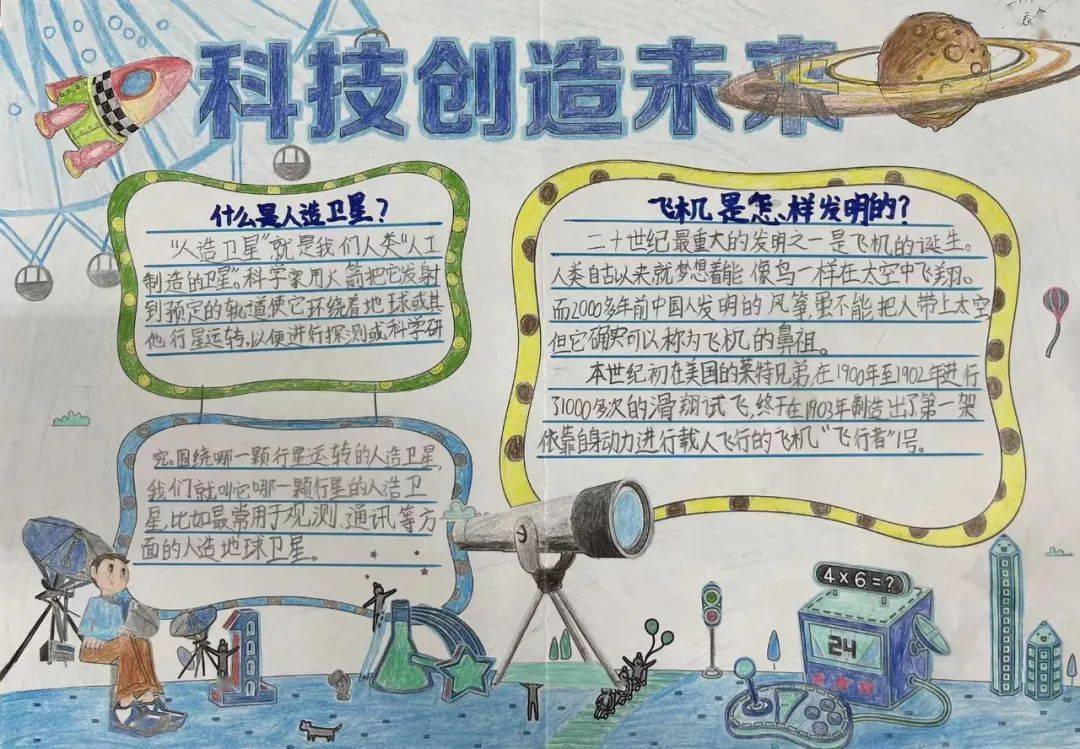 科技创造未来
什么是人造卫星?
“人造卫星”就是我们人类“人工
制造的卫星”。科学家用火箭把它发射
到预定的轨道使它环绕着地球或其
他行星运转,以便进行探测或科学研
究。围绕哪一颗行星运转的人造卫星,
我们就叫它哪一颗行星的人造卫
星,比如最常用于观测、通讯等方
面的人造地球卫星。
飞机是怎样发明的?
二十世纪最重大的发明之一是飞机的诞生。
人类自古以来就梦想着能像鸟一样在太空中飞翔。
而2000多年前中国人发明的风筝,虽不能把人带上太空
但它确实可以称为飞机的鼻祖。
本世纪初在美国的莱特兄弟,在1900年至1902年进行
了1000多次的滑翔试飞,终于在1903年制造出了第一架
依靠自身动力进行载人飞行的飞机“飞行者”1号。
4×6=?
24